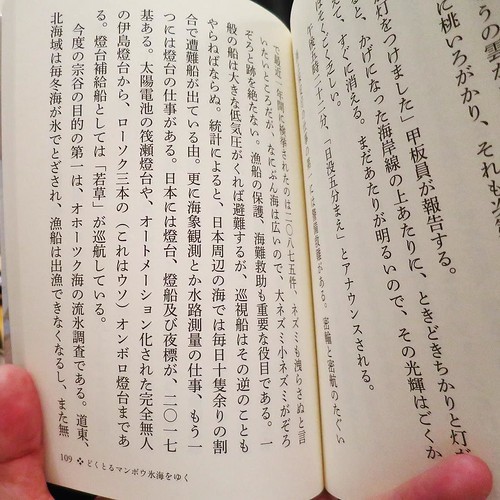 うの雲
に桃いろがかり、それも
灯をつけました」甲板員が報告する。
と、かげになった海岸線の上あたりに、ときどきちかりと灯が
えて、すぐに消える。まだあたりが明るいので、その光輝はごくか
そくごく乏しい。
分、「日没五分まえ」とアナウンスされる。
には警備救難がある。密輸と密航のたぐい
で最近一年間に検挙されたのは二〇八七五件、ネズミも洩らさぬと言
いたいところだが、なにぶん海は広いので、大ネズミ小ネズミがぞろ
ぞろと跡を絶たない。漁船の保護、海難救助も重要な役目である。一
般の船は大きな低気圧がくれば避難するが、巡視船はその逆のことも
やらねばならぬ。統計によると、日本周辺の海では毎日十隻余りの割
合で遭難船が出ている由。更に海象観測とか水路測量の仕事、もう一
つには燈台の仕事がある。日本には燈台、燈船及び夜標が、二〇一七
基ある。太陽電池の筏瀬燈台や、オートメーション化された完全無人
の伊島燈台から、ローソク三本の（これはウソ）オンボロ燈台まであ
る。燈台補給船としては「若草」が巡航している。
今度の宗谷の目的の第一は、オホーツク海の流氷調査である。道東、
北海域は毎冬海が氷でとざされ、漁船は出漁できなくなるし、また無
109 ❖ どくとるマンボウ氷海をゆく